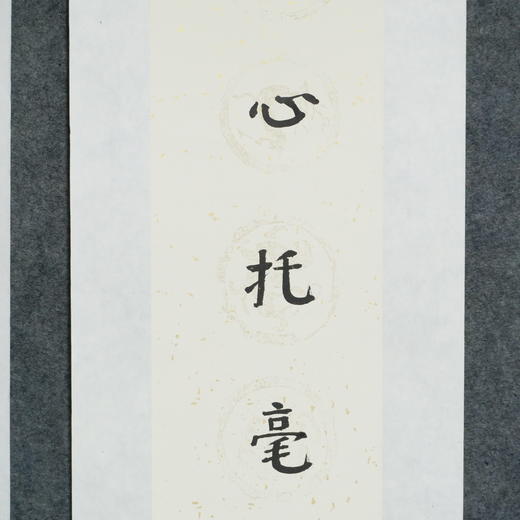 心托毫